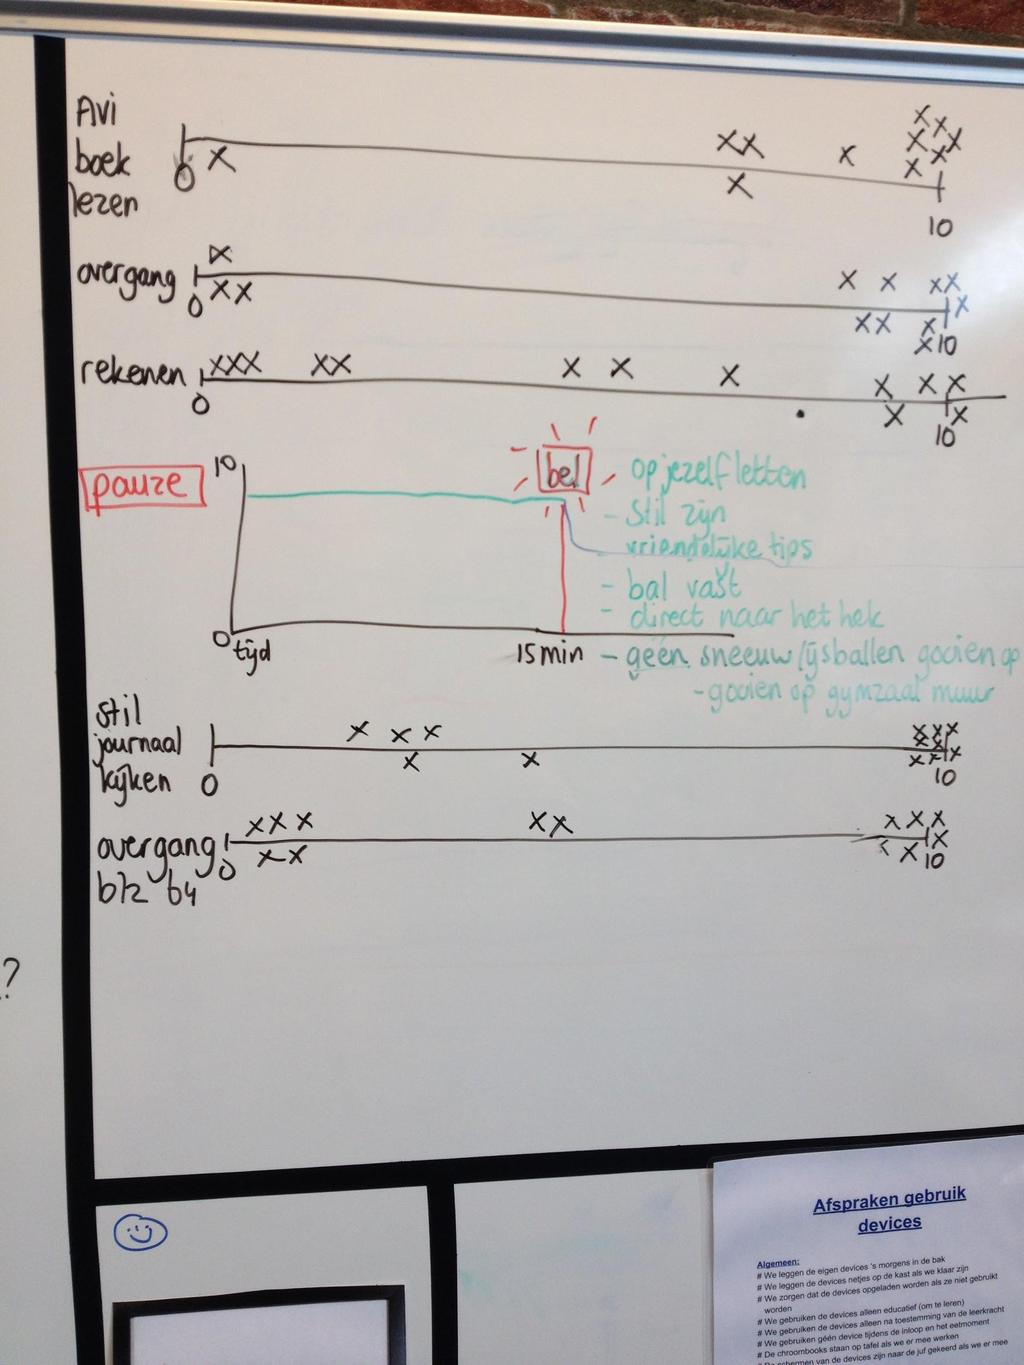 Avi
boek
lezen
0
10
overgang
0
10
rekenen
0
10
pauze
10
bel
- op jezelf letten
- Stil zijn
- vriendelijke tips
- bal vast
- direct naar het hek
0
tijd
15 min
- géén sneeuw/ijsballen gooien op
- gooien op gymzaal muur
stil
journaal
kijken
0
10
overgang
0
10
?
Afspraken gebruik
devices
Algemeen:
# We leggen de eigen devices 's morgens in de bak
# We leggen de devices netjes op de kast als we klaar zijn
# We zorgen dat de devices opgeladen worden als ze niet gebruikt
worden
# We gebruiken de devices alleen educatief (om te leren)
# We gebruiken de devices alleen na toestemming van de leerkracht
# We gebruiken géén device tijdens de inloop en het eetmoment
# De chroombooks staan op tafel als we er mee werken
schermen van de devices zijn naar de juf gekeerd als we er mee